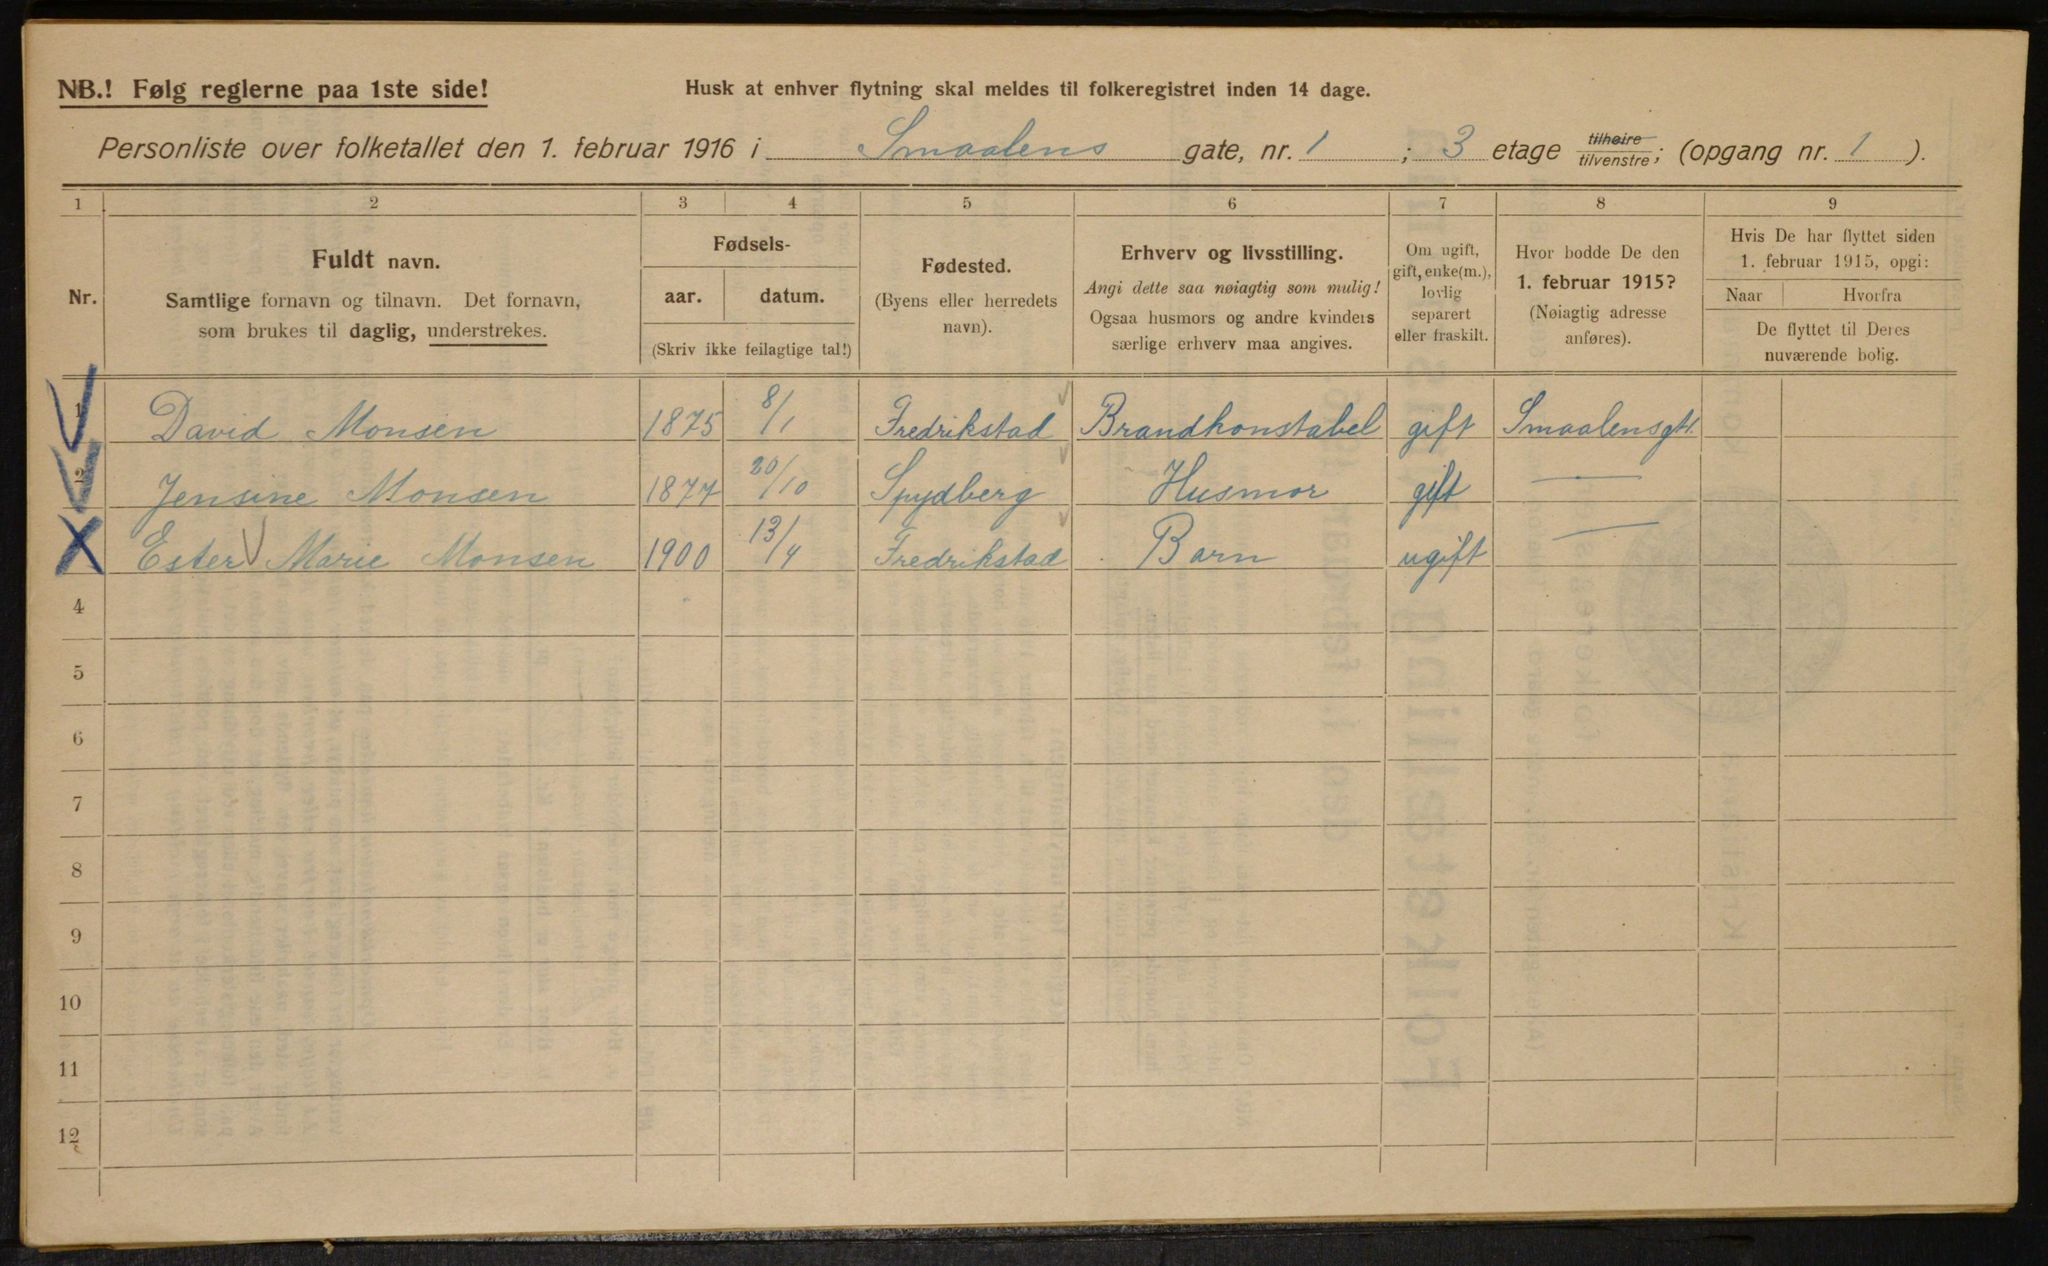 NB.! Følg reglerne paa 1ste side!
Husk at enhver flytning skal meldes til folkeregistret inden 14 dage.
Personliste over folketallet den 1. februar 1916 i Smaalens gate, nr. 1 ; 3 etage tilhøire tilvenstre; (opgang nr. 1 ).
1 2 3 4 5 6 7 8 9
Nr.
Fuldt navn.
Samtlige fornavn og tilnavn. Det fornavn,
som brukes til daglig, understrekes.
Fødsels-
aar. datum.
(Skriv ikke feilagtige tal!)
Fødested.
(Byens eller herredets
navn).
Erhverv og livsstilling.
Angi dette saa nøiagtig som mulig!
Ogsaa husmors og andre kvinders
særlige erhverv maa angives.
Om ugift,
gift, enke(m.),
lovlig
separert
eller fraskilt.
Hvor bodde De den
1. februar 1915?
(Nøiagtig adresse
anføres).
Hvis De har flyttet siden
1. februar 1915, opgi:
Naar Hvorfra
De flyttet til Deres
nuværende bolig.
1 David Monsen 1875 8/1 Fredrikstad Brandkonstabel gift Smaalensgt 1.
2 Jensine Monsen 1877 20/10 Spydberg Husmor gift —
Ester Marie Monsen 1900 13/4 Fredrikstad Barn ugift —
4
5
6
7
8
9
10
11
12